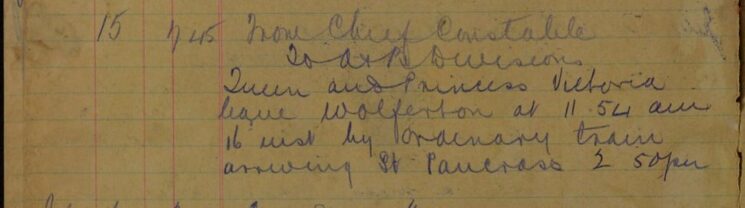 15 7 45 From Chief Constable
To A & B Divisions
Queen and Princess Victoria
leave Wolferton at 11 54 am
16 inst by ordinary train
arriving St Pancrass 2 50pm